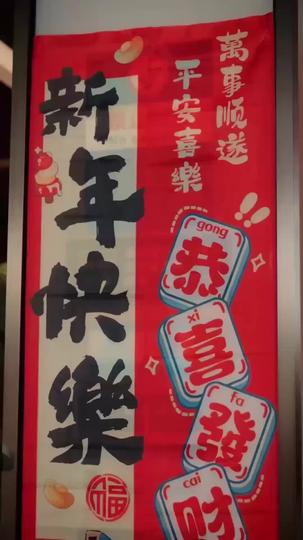 萬事順遂
平安喜樂
新年快樂
gong
恭
xi
喜
fa
發
cai
财
福